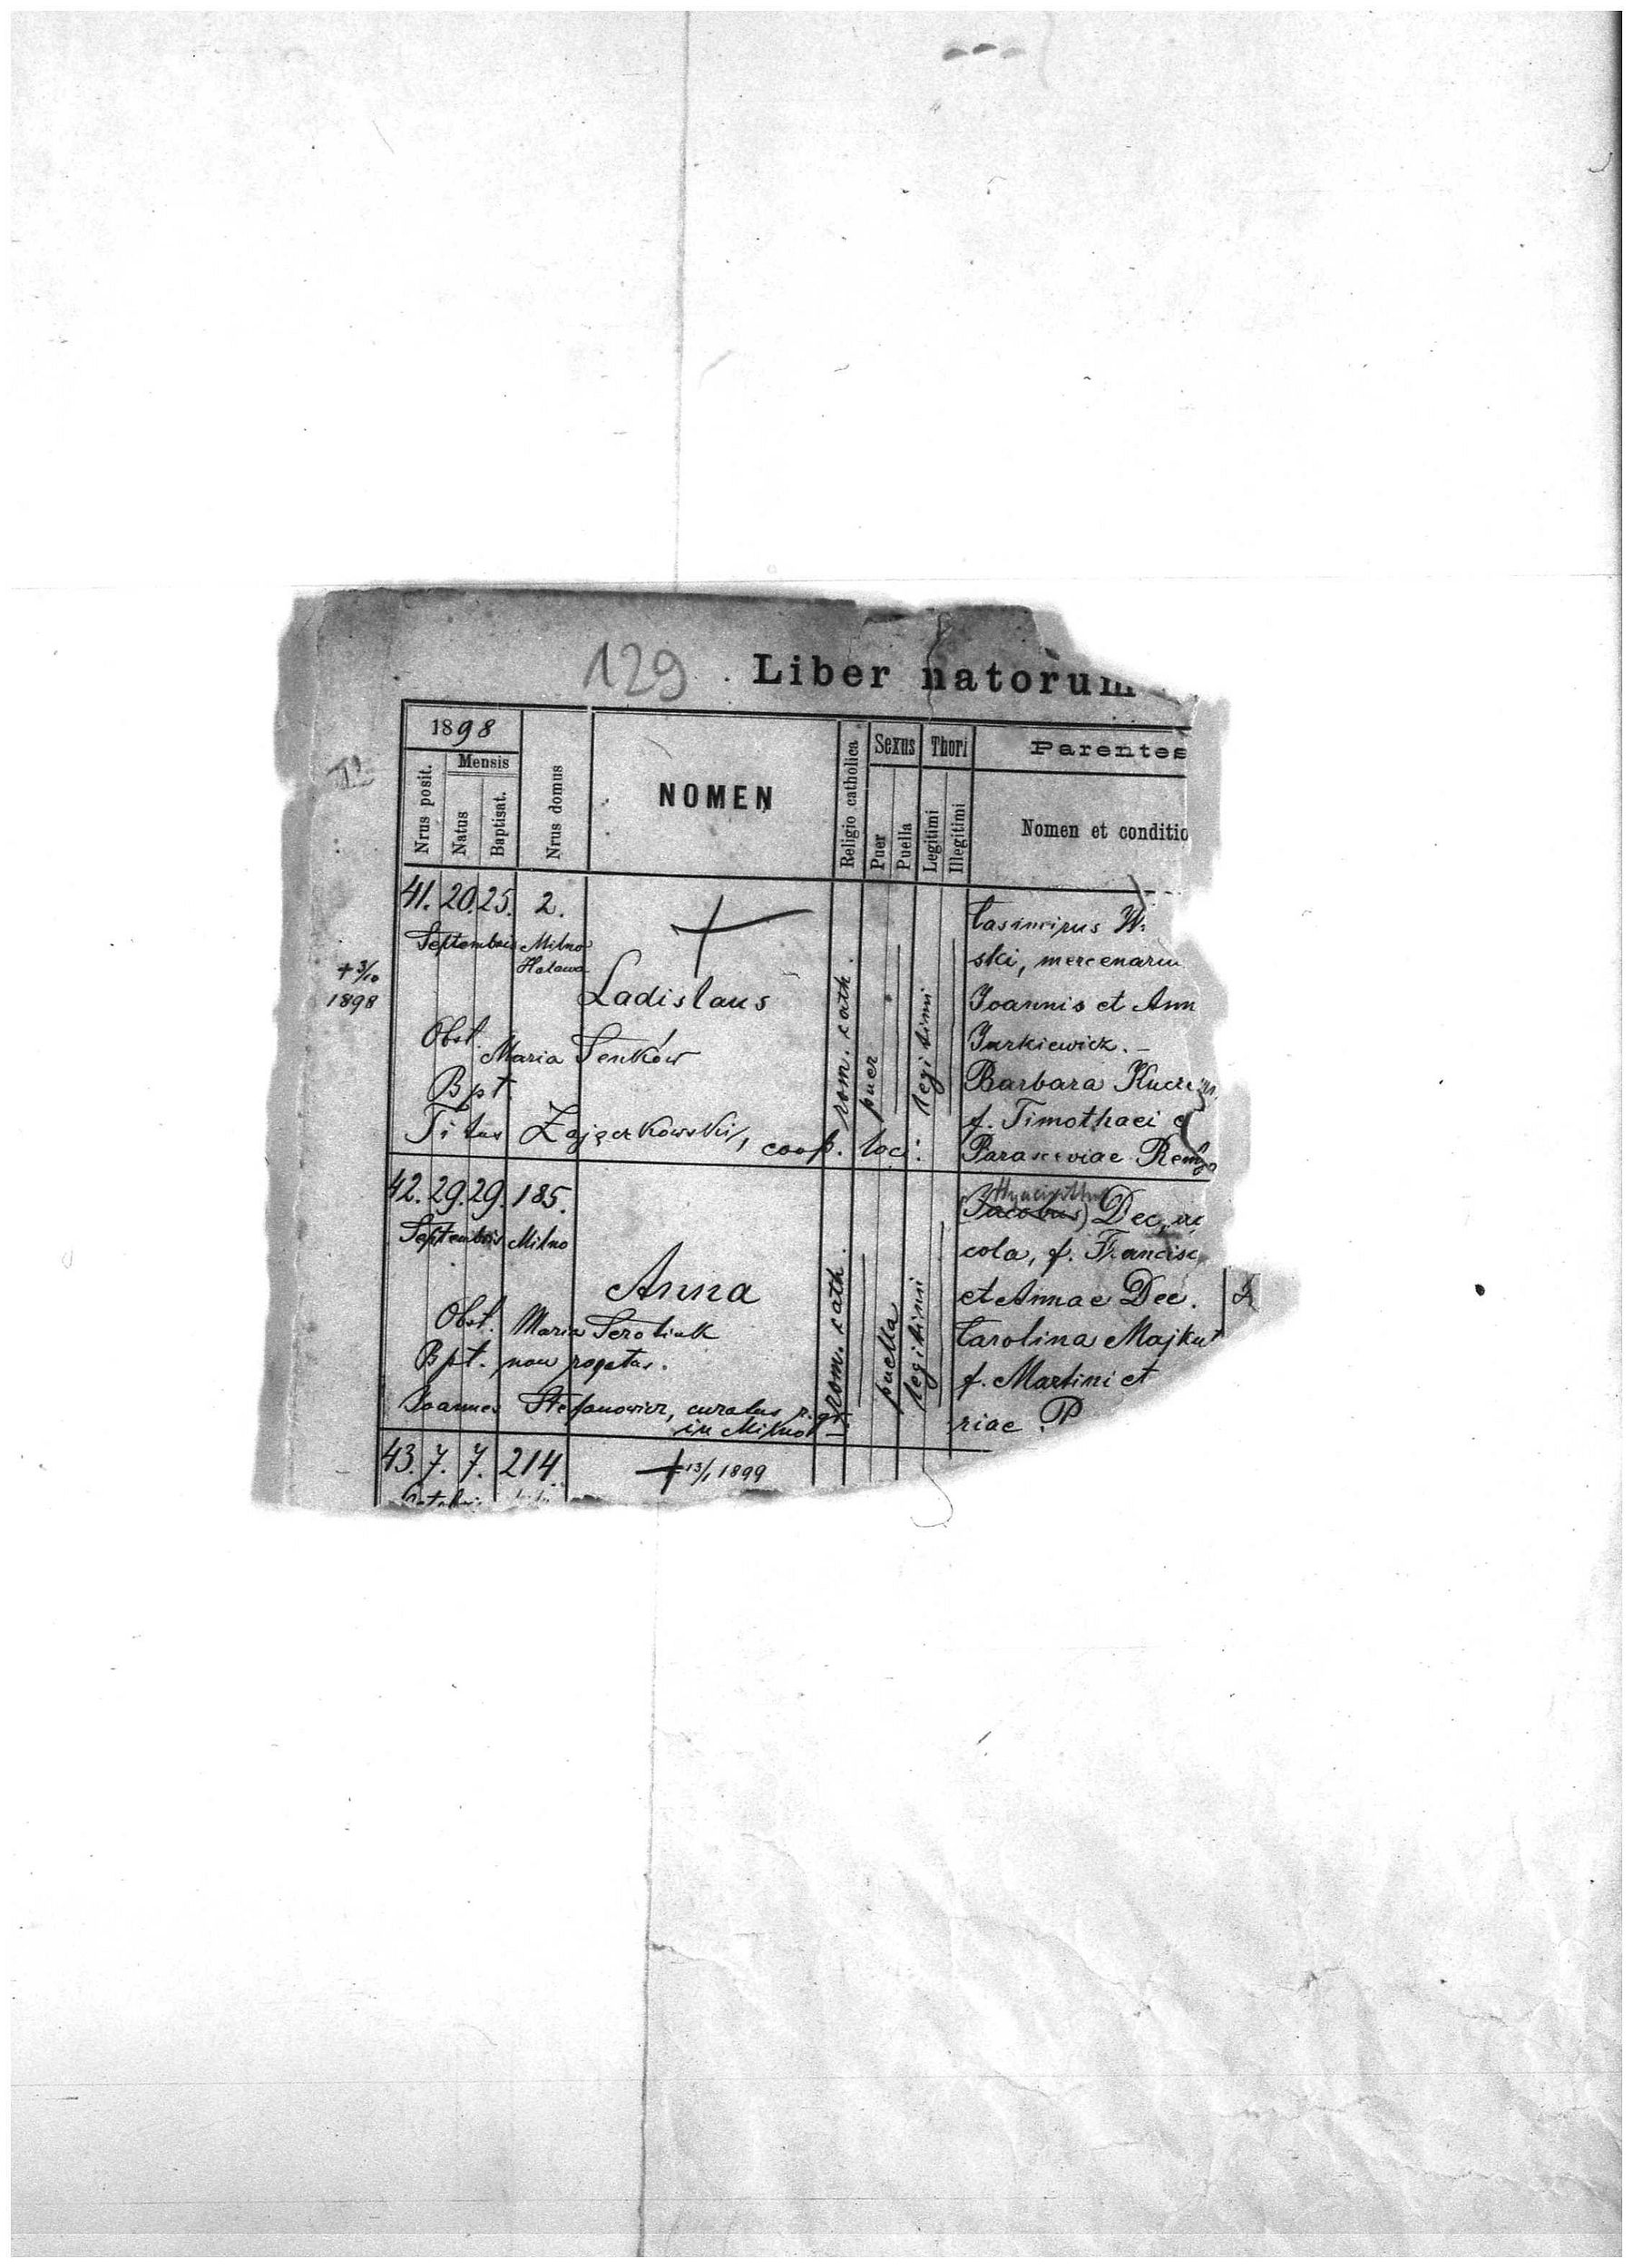 129 Liber natorum
1898
Mensis
Nrus posit.
Natus
Baptisat.
Nrus domus
NOMEN
Religio catholica
Sexus
Puer
Puella
Thori
Legitimi
Illegitimi
Parentes
Nomen et conditio
41. 20. 25. 2.
Septembris Milno
Hatawa
+ 3/10
1898
Ladislaus
Obst. Maria Senków
Bpt.
Titus Zajączkowski, coop. loci.
rom. cath.
puer
legitimi
Casimirus W
ski, mercenariu
Joannis et Ann
Jurkiewicz. –
Barbara
f. Timothaei
Parasceviae
42. 29. 29. 185.
Septembris Milno
Anna
Obst. Maria
Bpt. non rogatus.
Joannes Stefanowicz, curatus r. gr.
in Milno –
rom. cath.
puella
legitimi
Hyacinthus
(Jacobus) Dec, ag
cola, f. Francisc
et Annae Dec.
Carolina Majkut
f. Martini et
riae P
43. 7. 7. 214.
+ 13/1 1899